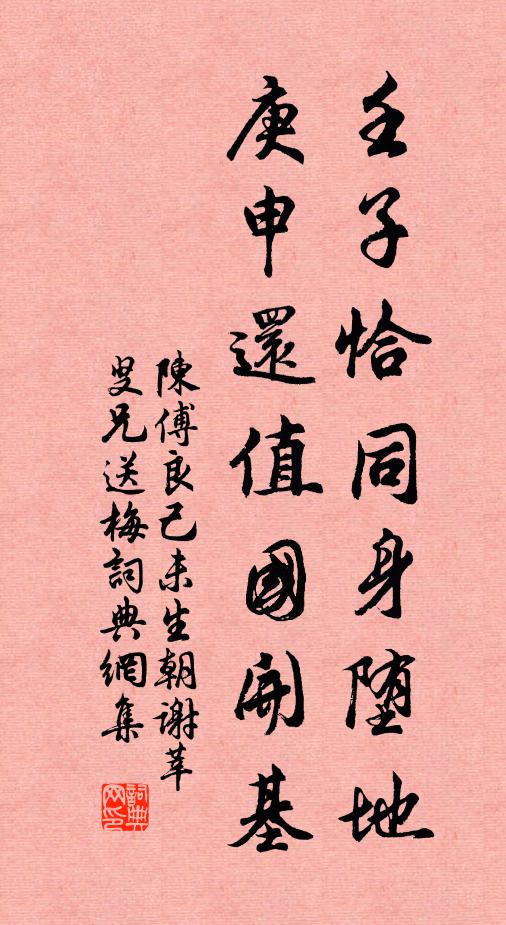 壬子恰同身堕地
庚申還值國開基
陳傅良己未生朝謝莘
叟兄送梅詞典網集
詞典网印